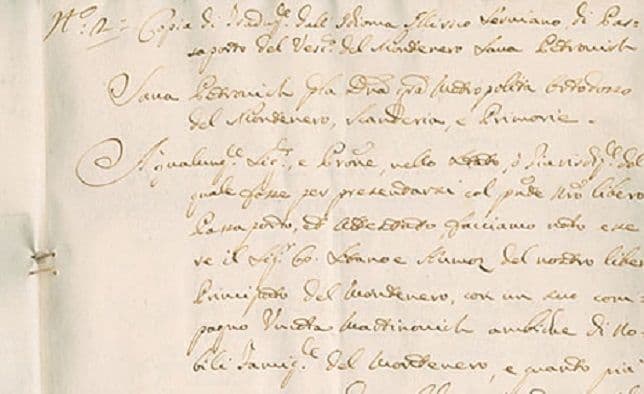 N.º 2.º Copia di Traduz.e dall' Idioma Illirico Serviano di Pas-
saporto del Vesc.º del Montenero Sava Petrovich
Sava Petrovich p la Dña grã Metropolita Ortodosso
del Montenero, Scanderia, e Primorie.
A qualunq.e Sig.r, e Prõne, nello Stado, ò Giurisdiz.e del
quale fosse per presendarsi col pñte Nrõ libero
Passaporto, ed Attestado facciamo noto esse-
re il Sig.r Co: del nostro liber
Principato del Montenero, con un suo com-
pagno Martinovich ambi che di No-
bili Famig.le del Montenero, e quanto più